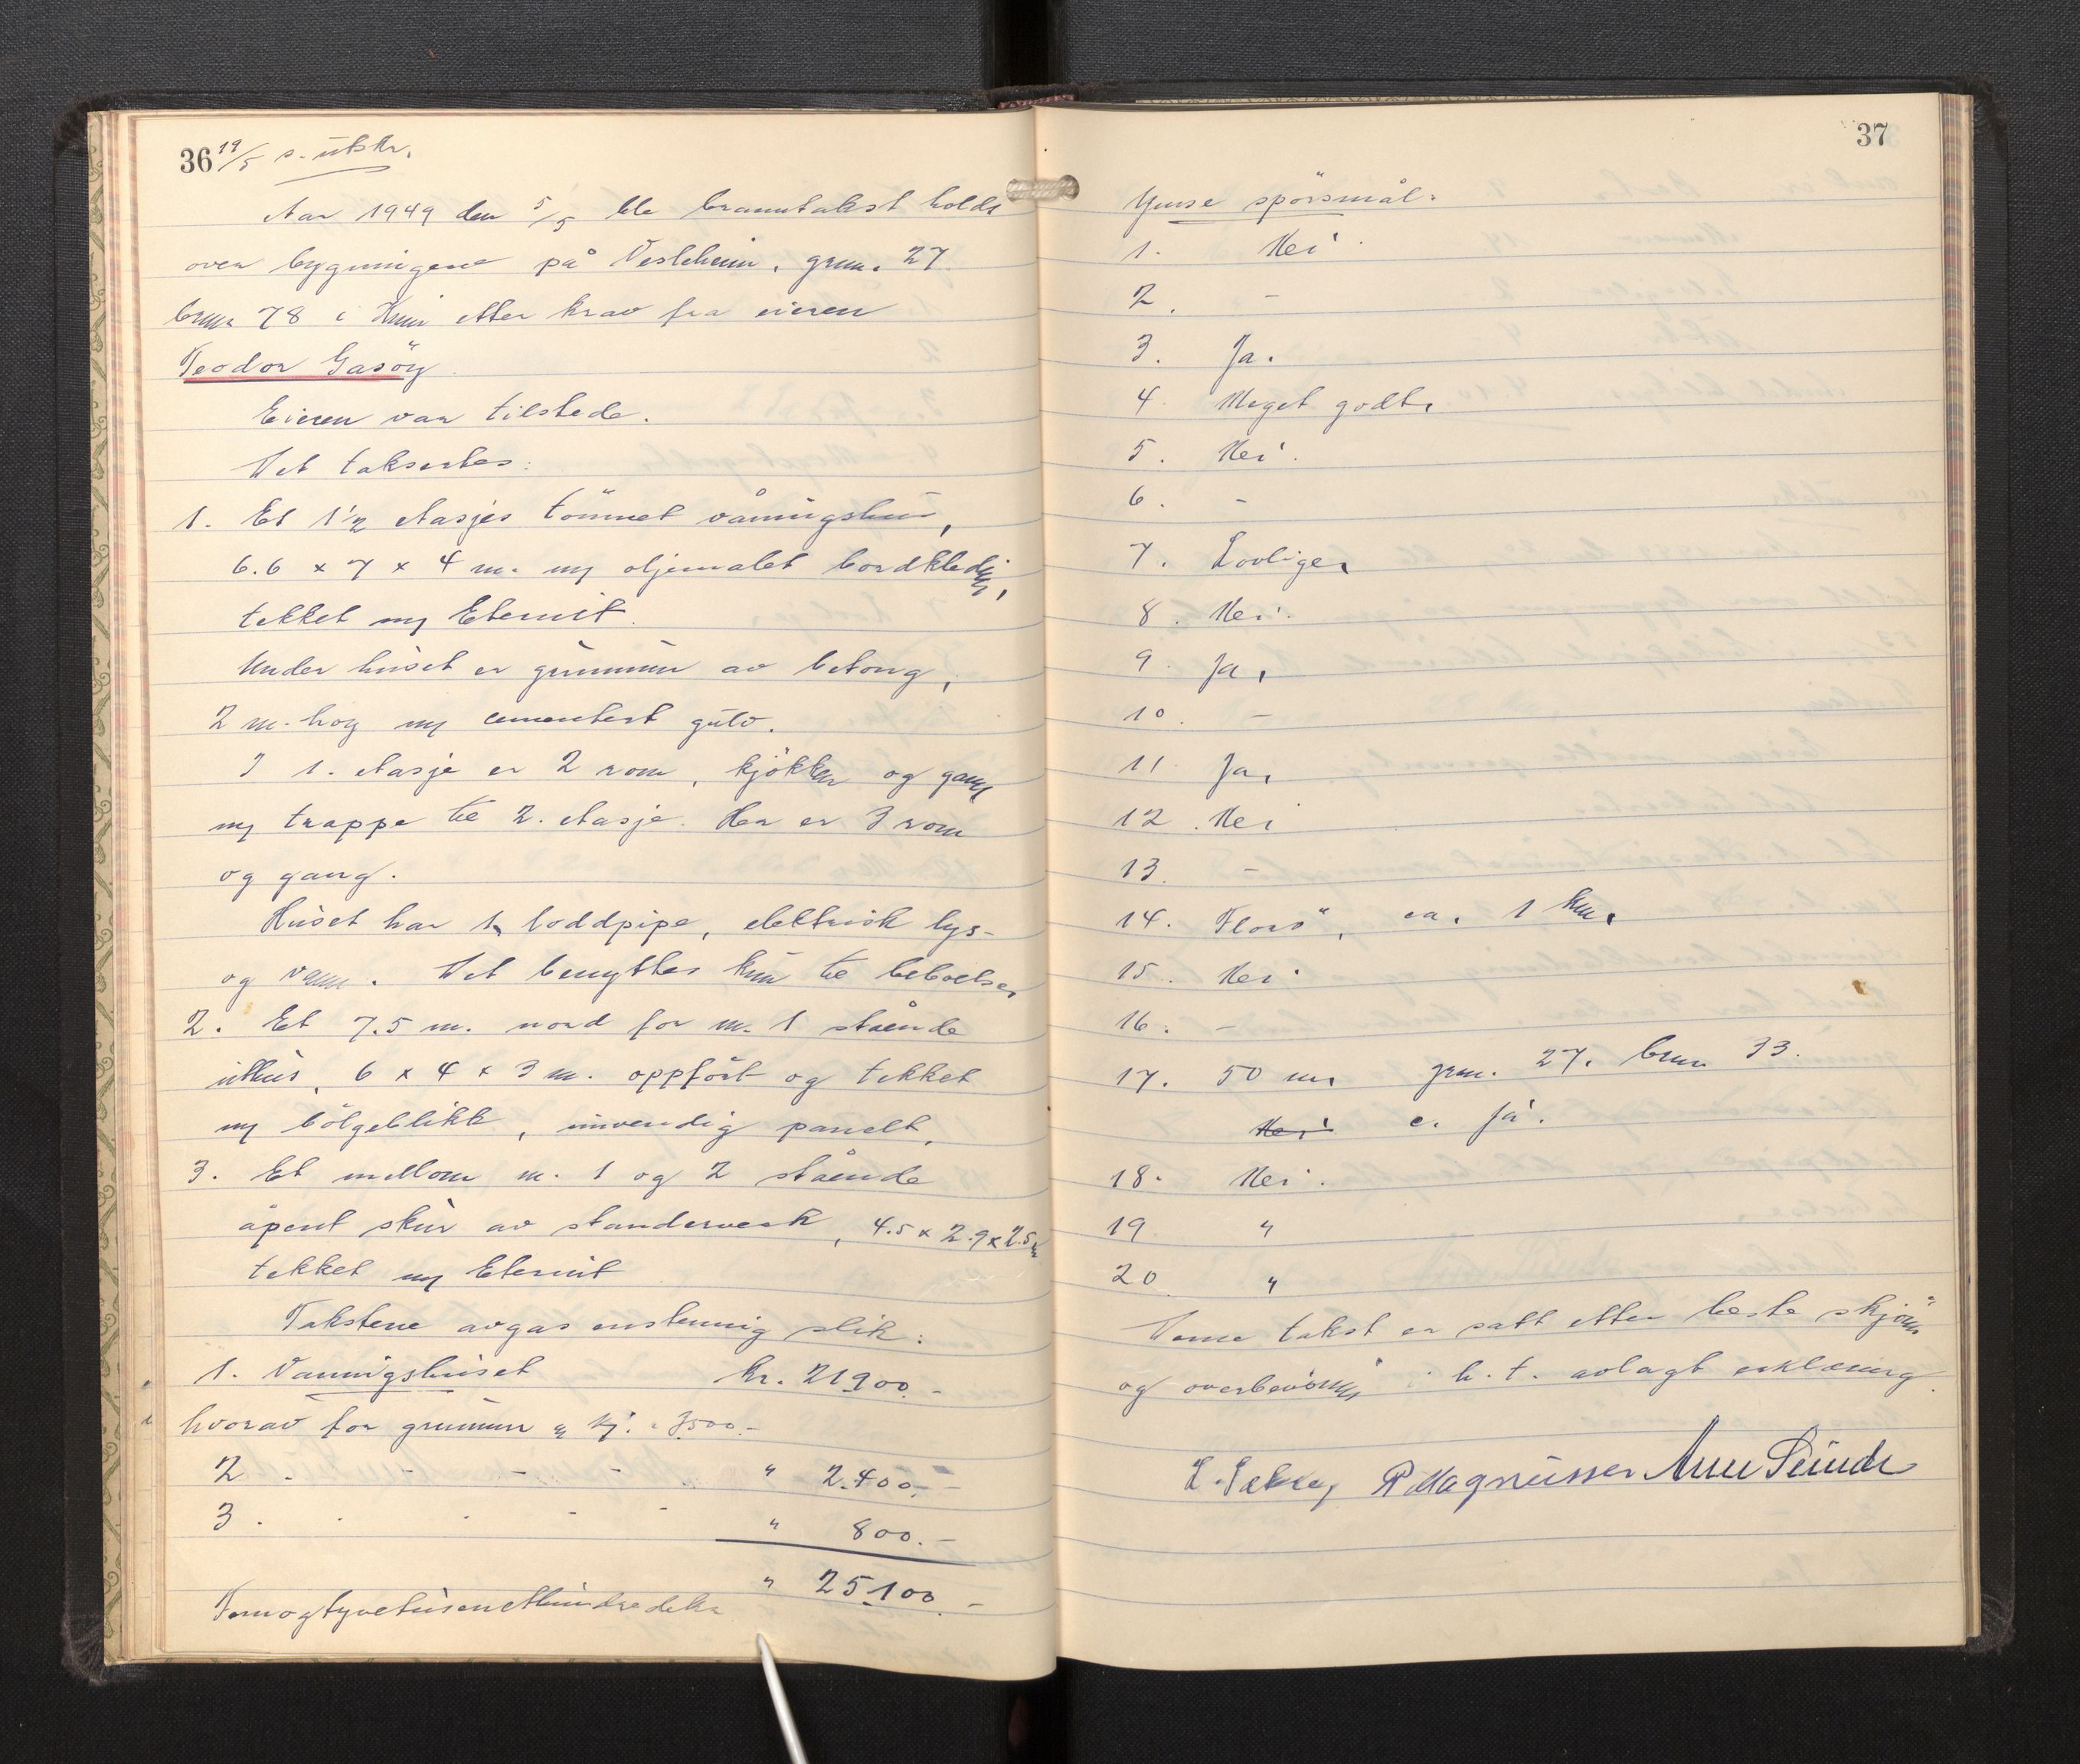 36 19/5 s. utskr.
Aar 1949 den 5/5 ble branntakst holdt
over bygningene på Vesleheim, grnr. 27
brnr 78 i Kinn etter krav fra eieren
Teodor Gasöy
Eieren var tilstede.
Det taksertes:
1. Et 1½ etasjes tömret våningshus,
6.6 x 7 x 4 m. m/ oljemalet bordkledning,
tekket m/ Eternit.
Under huset er grunnmur av betong,
2 m. høy m/ cementert gulv.
I 1. etasje er 2 rom, kjökken og gang
m/ trappe til 2. etasje. Her er 3 rom
og gang.
Huset har 1 loddpipe, elektrisk lys-
og vann. Det benyttes kun til beboelse,
2. Et 7.5 m. nord for nr. 1 stående
uthus, 6 x 4 x 3 m. oppfört og tekket
m/ bölgeblikk, innvendig panelt.
3. Et mellom nr. 1 og 2 stående
åpent skur av standerverk, 4.5 x 2.9 x 2.5 m
tekket m/ Eternit
Takstene avgas enstemmig slik:
1. Vaningshuset kr. 21900.-
hvorav for grunmur " kj. " 3500.-
2 . - - - . " 2.400.-
3 . . . - - " 800.-
" 25100.-
Femogtyvetusenetthundrede kr
37
Ymse spörsmål:
1. Nei.
2. -
3. Ja.
4 Meget godt.
5. Nei.
6. -
7. Lovlige.
8. Nei.
9. Ja.
10. -
11. Ja.
12. Nei
13. -
14. Florö, ca. 1 km.
15. Nei
16. -
17. 50 m. grnr. 27. brnr 33.
Nei c. Ja.
18. Nei.
19 "
20 "
Denne takst er satt etter beste skjönn
og overbevisning i h. t. avlagt erklæring.
R Magnussen